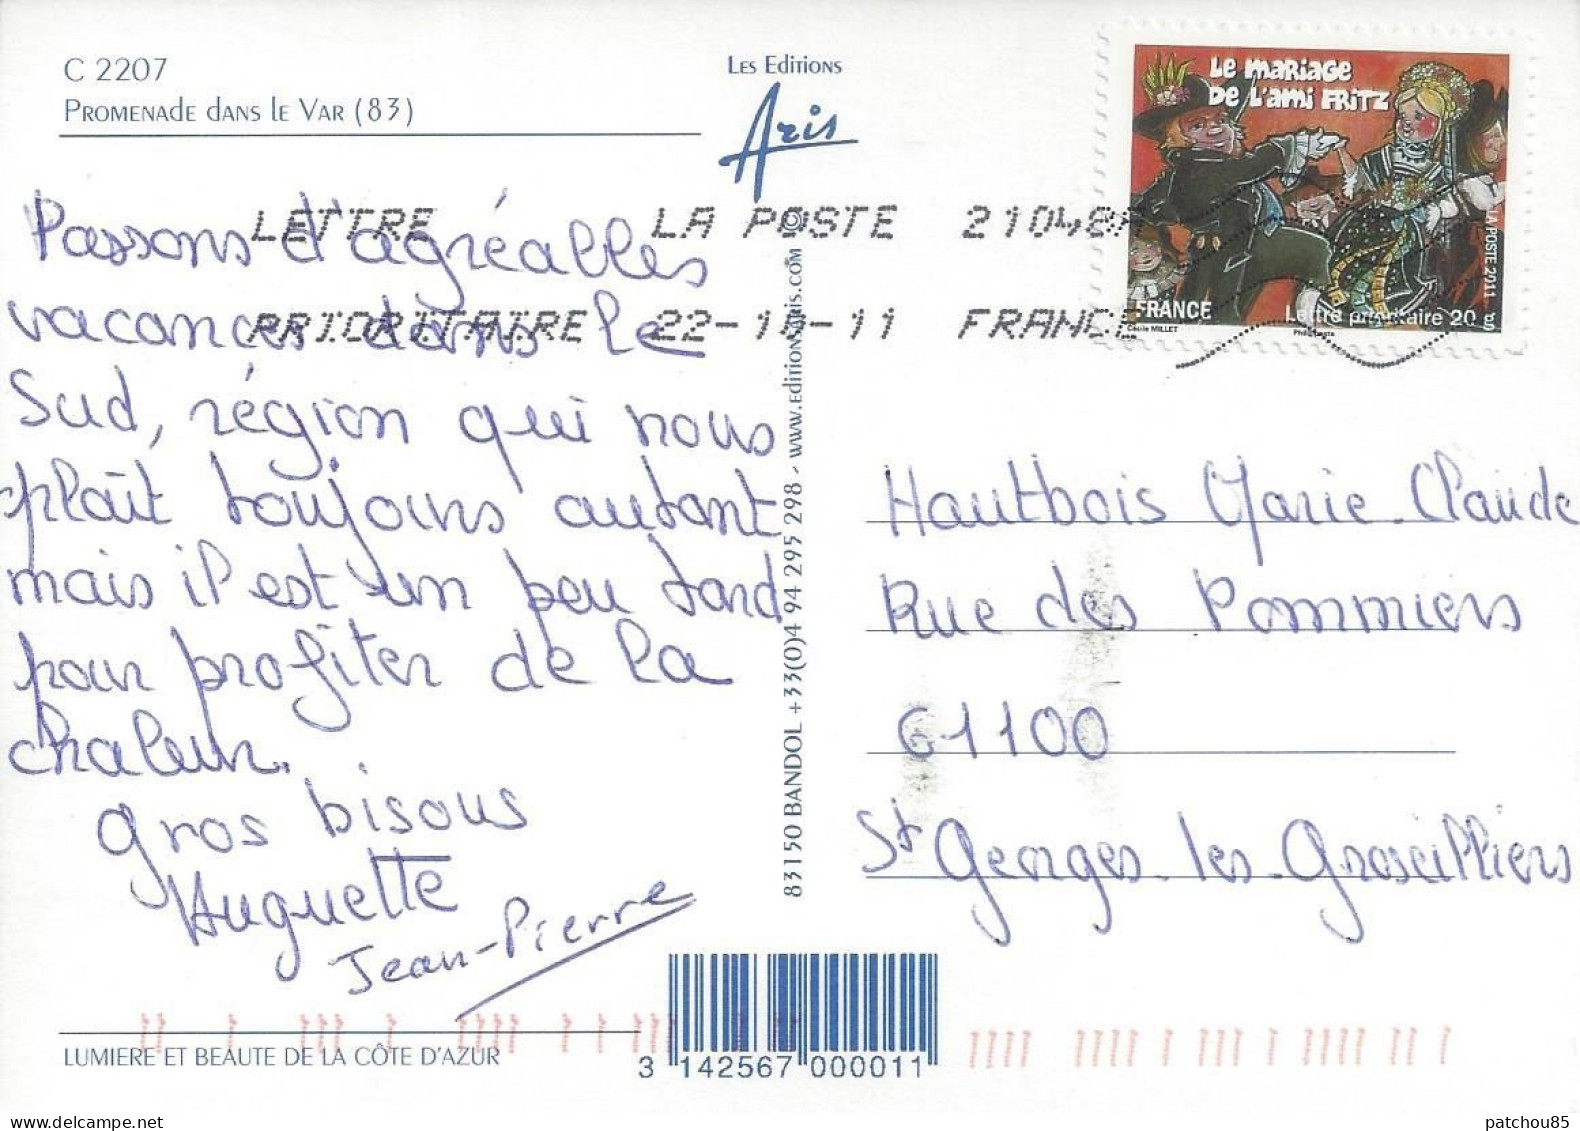 C 2207
Promenade dans le Var (83)
Les Editions
Aris
Le mariage
de l'ami Fritz
LA POSTE 2011
FRANCE
Lettre prioritaire 20 g
Cécile MILLET
LETTRE LA POSTE 21048A
PRIORITAIRE 22-10-11 FRANCE
Passons d'agréables
vacances dans le
Sud, région qui nous
plaît toujours autant
mais il est un peu tard
pour profiter de la
chaleur.
gros bisous
Huguette
Jean-Pierre
83150 BANDOL +33(0)4 94 295 298 - www.editionsaris.com ©
Hautbois Marie-Claude
Rue des Pommiers
61100
St Georges-les-Groseilliers
LUMIERE ET BEAUTE DE LA CÔTE D'AZUR
3 142567 000011
patchou85